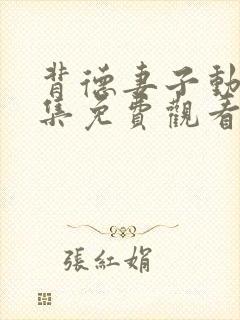 背德妻子動
集免費觀看
張紅娟